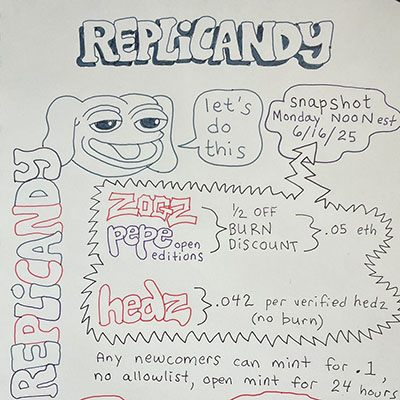 REPLiCANDY
let's
do
this
snapshot
Monday NOON est
6/16/25
REPLiCANDY
ZOGZ
pepe open
editions
1/2 OFF
BURN
DISCOUNT
.05 eth
hedz
.042 per verified hedz
(no burn)
Any newcomers can mint for .1,
no allowlist, open mint for 24 hours